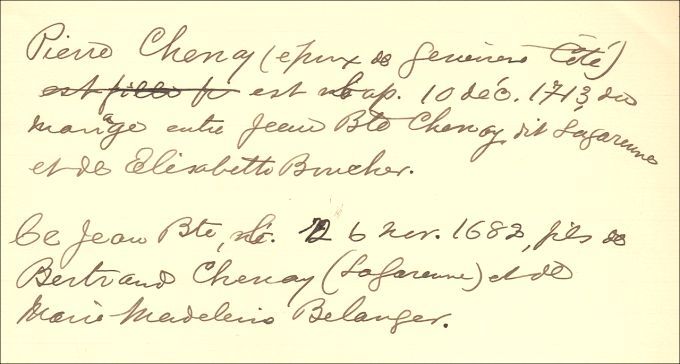 Pierre Chenay (époux de Geneviève Côté)
est fille fi est né bap. 10 déc. 1713, du
mariage entre Jean Bte Chenay, dit Lagarenne
et de Elisabeth Boucher.
Ce Jean Bte, né. 6 nov. 1682, fils de
Bertrand Chenay (Lagarenne) et de
Marie Madeleine Belanger.